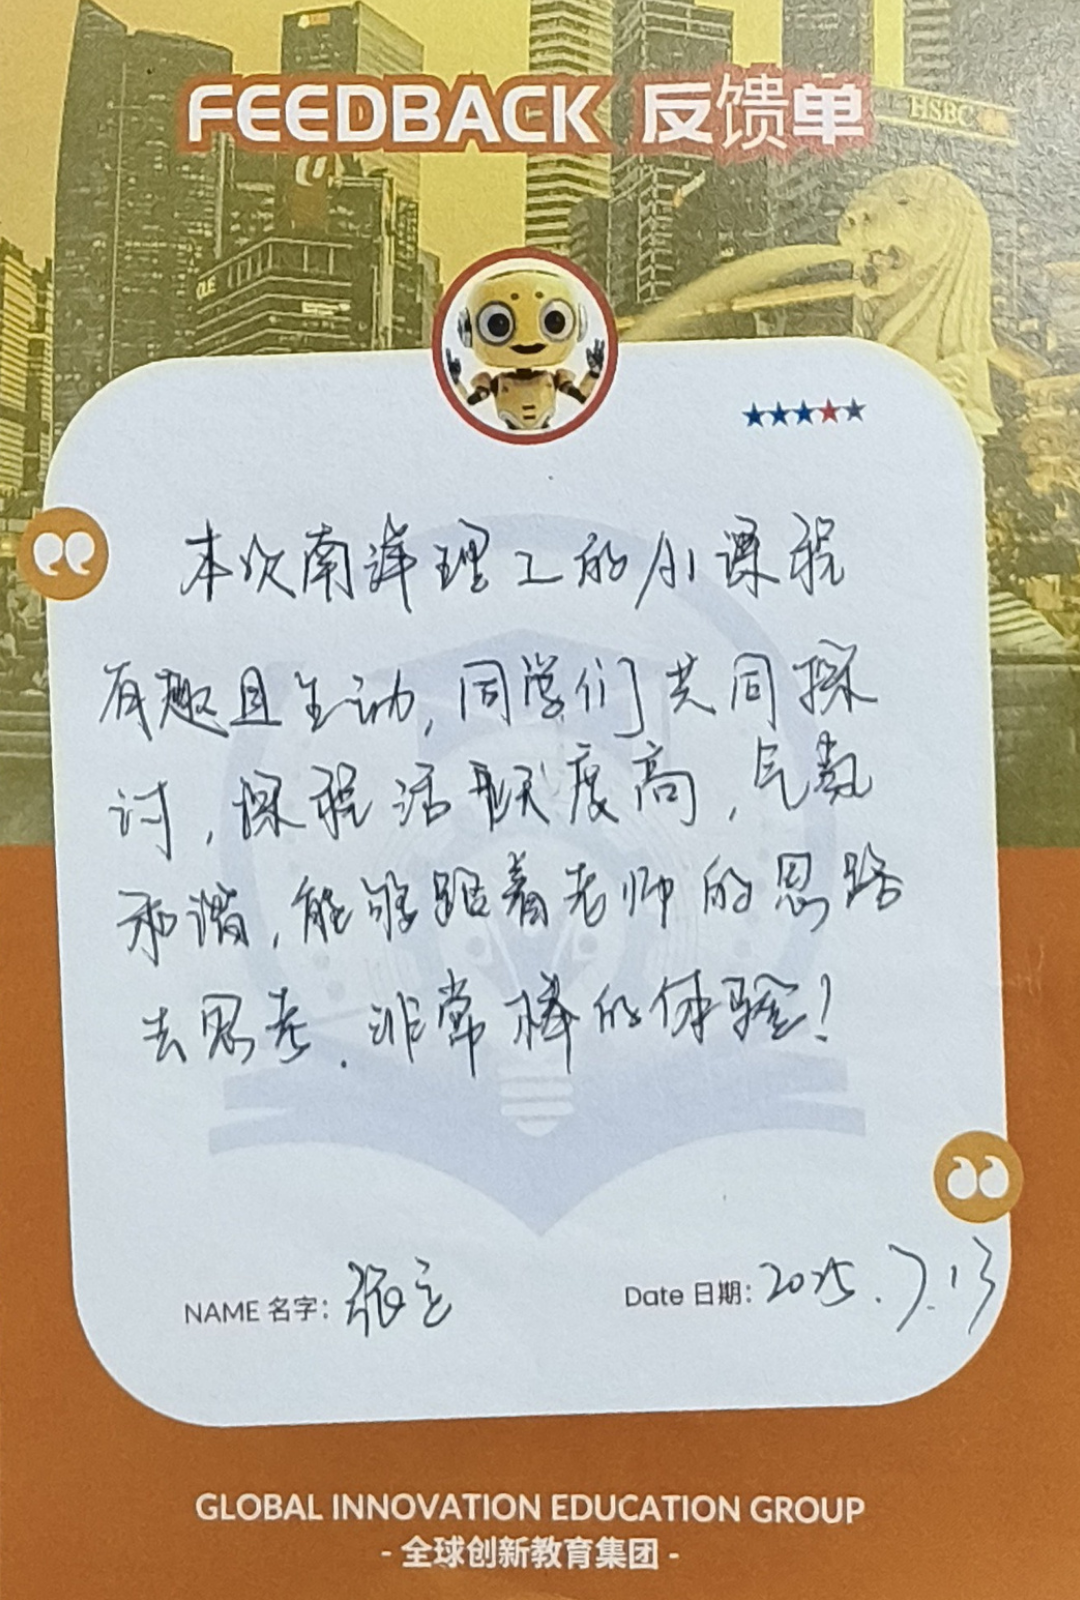 FEEDBACK 反馈单
HSBC
本次南洋理工的AI课程
有趣且生动,同学们共同探
讨,课程活跃度高,气氛
和谐,能够跟着老师的思路
去思考.非常棒的体验!
NAME 名字: 张立
Date 日期: 2025.7.13
GLOBAL INNOVATION EDUCATION GROUP
- 全球创新教育集团 -